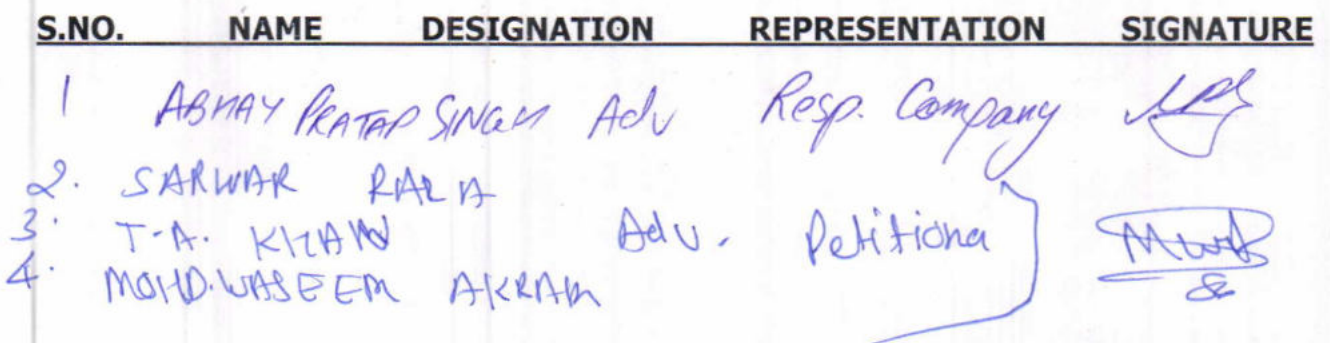 S.NO. NAME DESIGNATION REPRESENTATION SIGNATURE
1 ABHAY PRATAP SINGH Adv Resp. Company
2. SARWAR RAZA
3. T.A. KHAN Adv. Petitiona
4. MOHD.WASEEM AKRAM